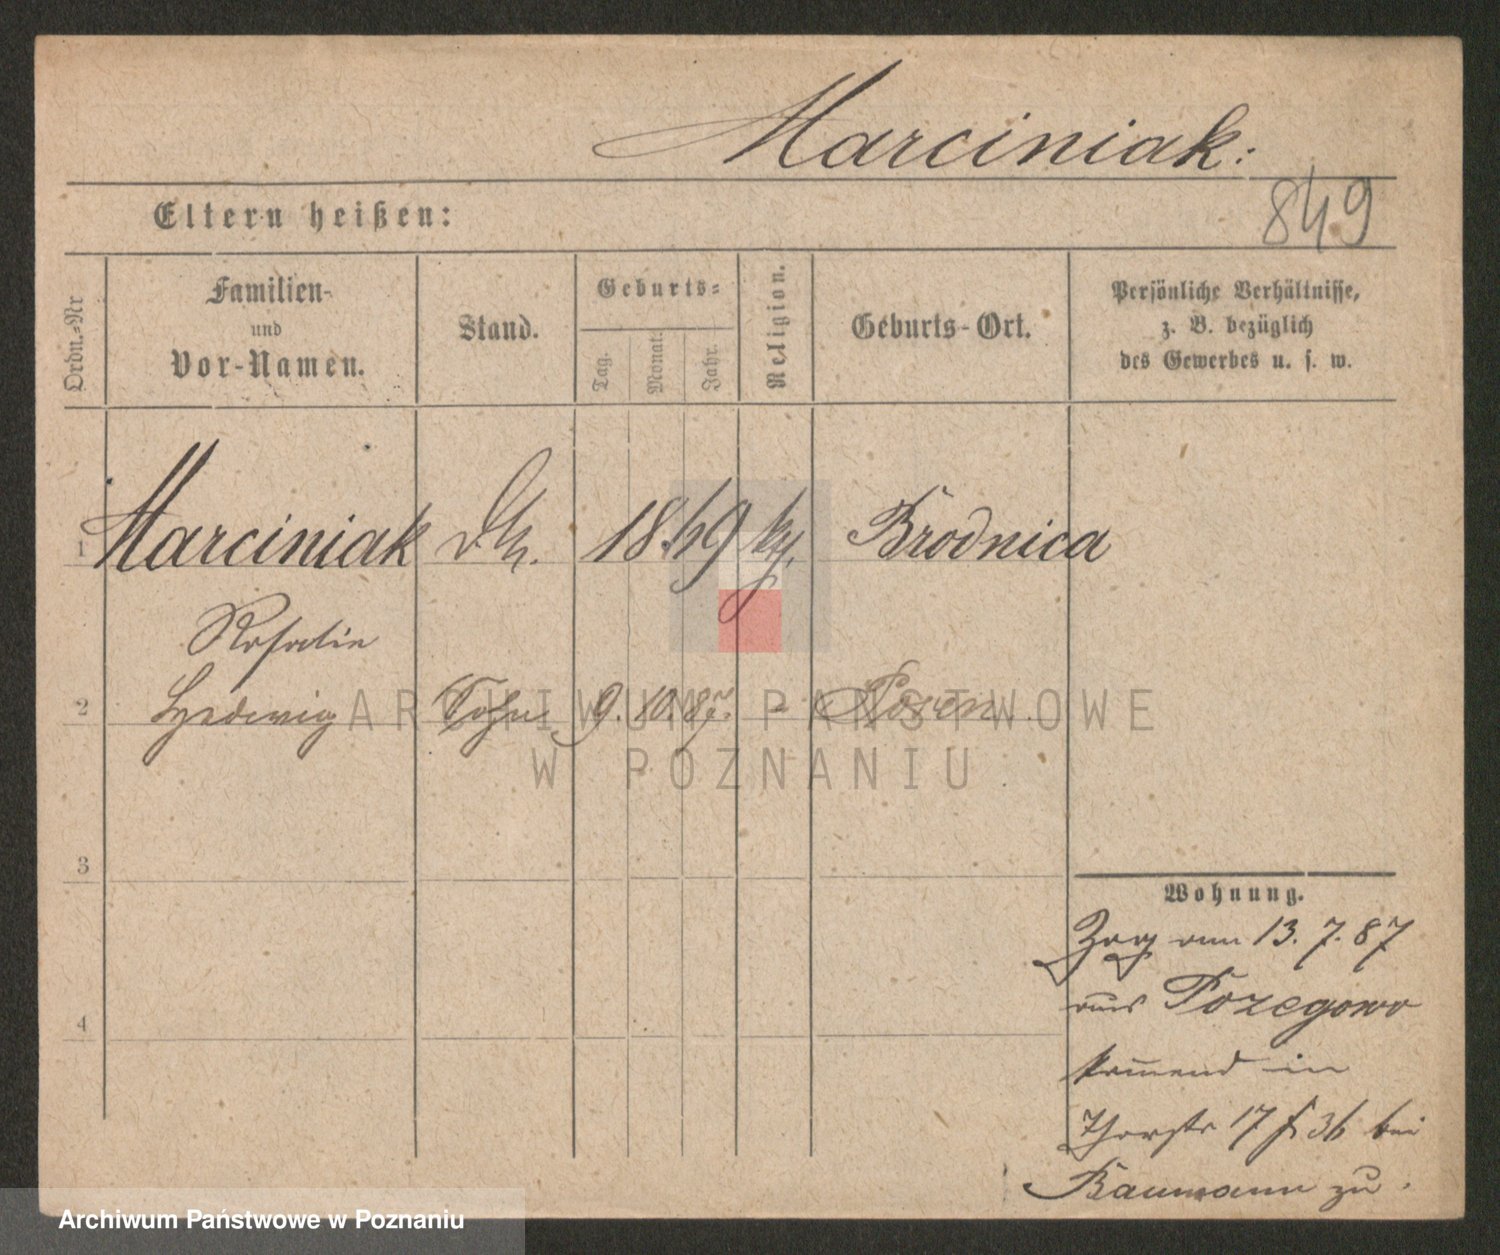 Marciniak.
849
Eltern heißen:
Ordn.-Nr
Familien-
und
Vor-Namen.
Stand.
Geburts-
Tag.
Monat.
Jahr.
Religion.
Geburts-Ort.
Persönliche Verhältnisse,
z. B. bezüglich
des Gewerbes u. s. w.
1 Marciniak 18 69 Brodnica
Rosalie
2 Hedwig 9. 10. 87. - Posen
3
4
Wohnung.
Zug am 13. 7. 87
aus Pozegowo
kom̄end in
Thorstr 17 bei
Baumann zu.
ARCHIWUM PAŃSTWOWE
W POZNANIU
Archiwum Państwowe w Poznaniu